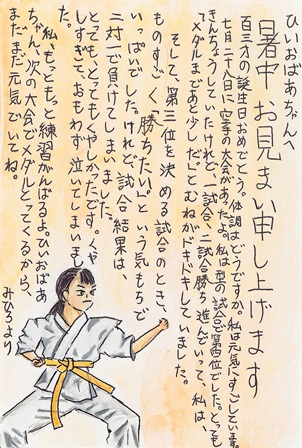 ひいおばあちゃんへ
暑中お見まい申し上げます
百三才の誕生日おめでとう。体調はどうですか。私は元気にすごしています。
七月二十八日に空手の大会があったよ。私は型の試合で第四位でした。とっても
きんちょうしていたけれど、一試合、二試合勝ち進んでいって、私は、
「メダルまであと少しだ」とむねがドキドキしていました。
そして、第三位を決める試合のとき、
ものすごく「勝ちたい」という気もちで
いっぱいでした。けれど、試合結果は、
二対一で負けてしまいました。
とっても、とってもくやしかったです。くや
しすぎて、おもわず泣いてしまいまし
た。
私、もっともっと練習がんばるよ。ひいおばあ
ちゃん、次の大会でメダルとってくるから、
まだまだ元気でいてね。
みひろより